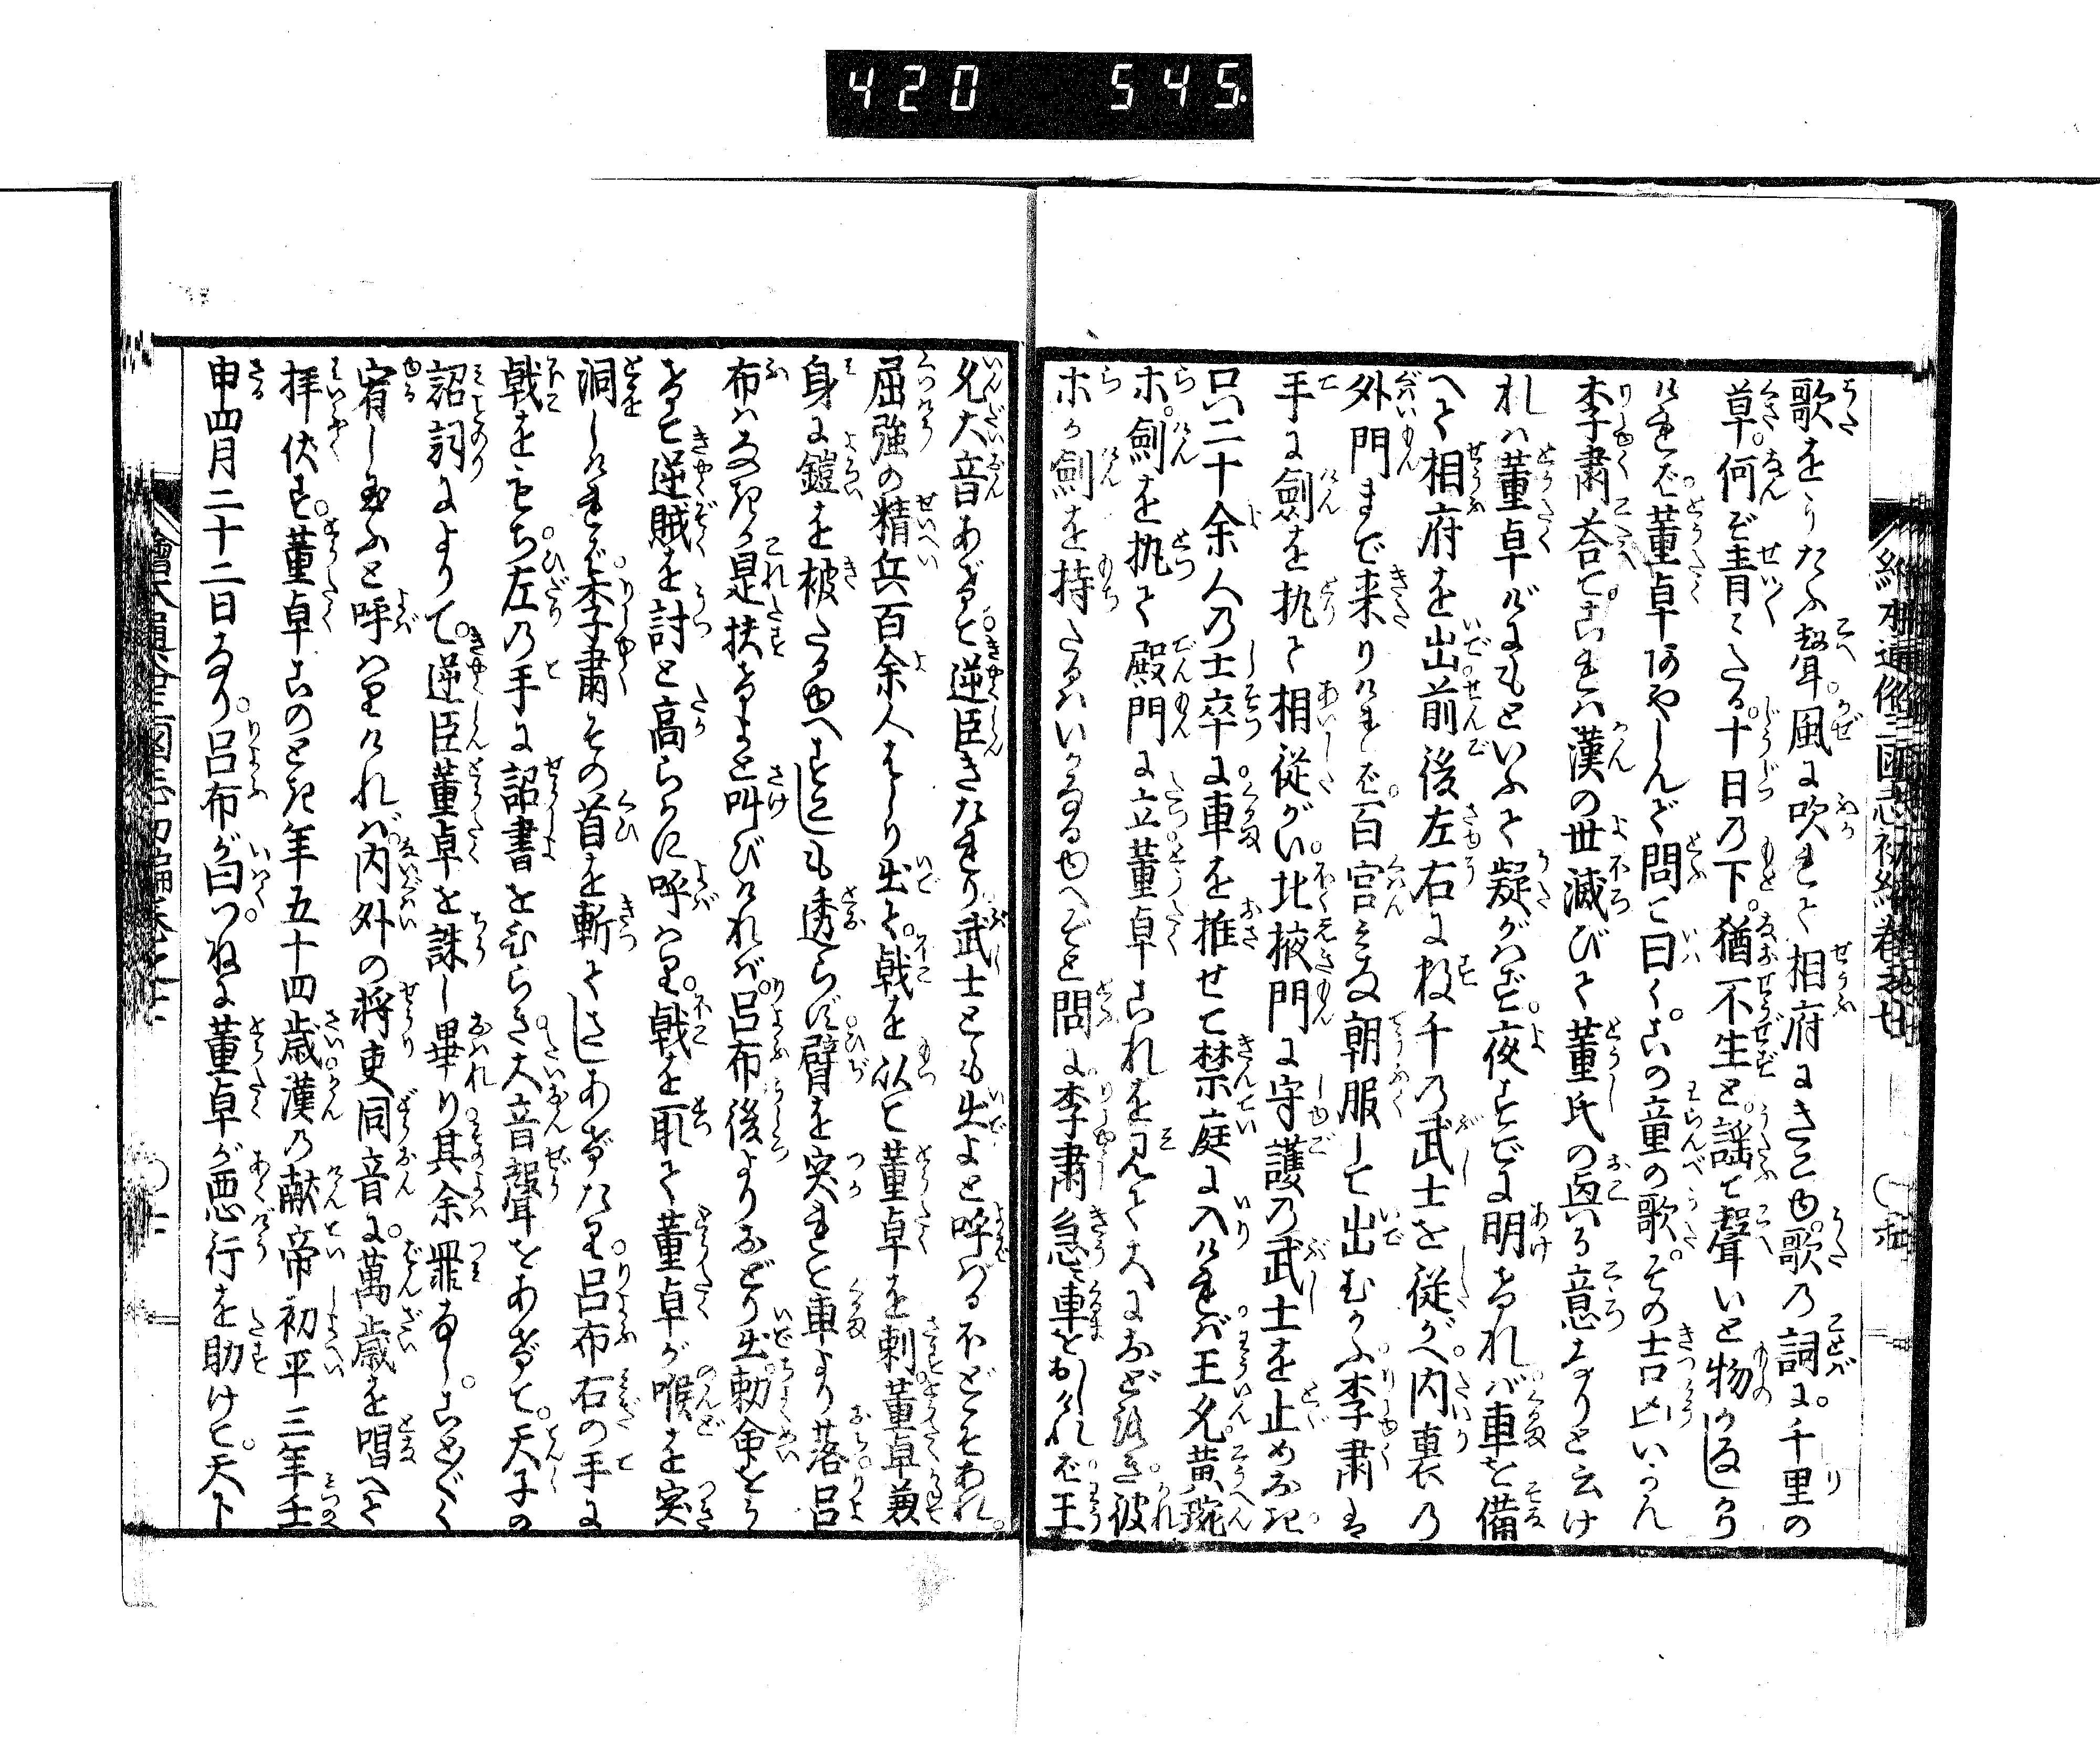 420 545
歌をうたふ聲風に吹れて相府にきこゆ歌の詞に千里の
草何ぞ青々たる十日の下猶不生と謡て聲いと物かなしかり
ければ董卓あやしんで問て曰くこの童の歌その吉凶いかん
李肅荅てこれは漢の世滅びて董氏の興る意なりと云け
れは董卓げにもといふて疑がはず夜すでに明ければ車を備
へて相府を出前後左右に数千の武士を従がへ内裏の
外門まで来りければ百官みな朝服して出むかふ李肅は
手に劍を執て相従がい北掖門に守護の武士を止めおき
只二十余人の士卒に車を推せて禁庭に入ければ王允黄琬
ホ劍を执て殿門に立董卓これを見て大におどろき彼
ホか劍を持たるはいかなるゆへぞと問に李肅急に車をおしければ王
允大音あげて逆臣きたれり武士ども出よと呼はるほどこそあれ
屈強の精兵百余人はしり出て戟を以て董卓を刺董卓兼
身に鎧を被たるゆへすこしも透らず臂を突れて車より落呂
布はなきか是扶けよと叫びければ呂布後よりおどり出勅命をう
けて逆賊を討と高らかに呼はり戟を取て董卓が喉を突
洞しければ李肅その首を斬てさしあげたり呂布右の手に
戟をもち左の手に詔書をひらき大音聲をあげて天子の
詔詞によりて逆臣董卓を誅し畢り其余罪なしことごとく
宥し玉ふと呼はりければ内外の将吏同音に萬歳を唱へて
拝伏す董卓このとき年五十四歳漢の献帝初平三年壬
申四月二十二日なり呂布が曰つねに董卓が悪行を助けて天下